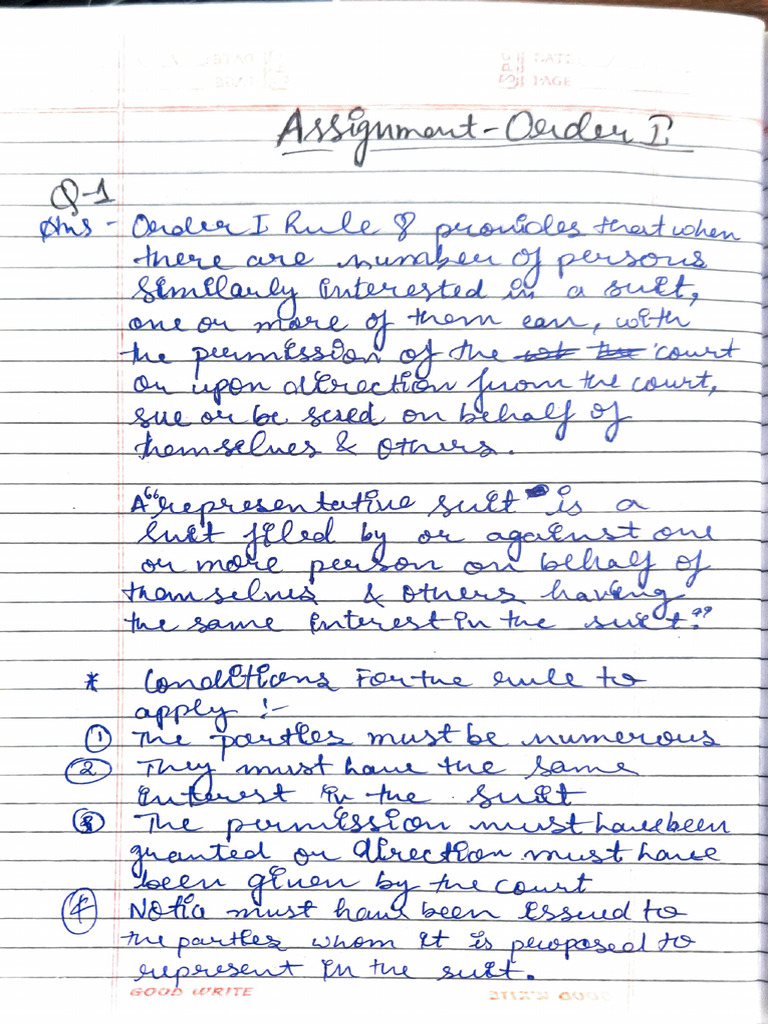 DATE
PAGE
Assignment - Order I
Q-1
Ans - Order I Rule 8 provides that when
there are number of persons
similarly interested in a suit,
one or more of them can, with
the permission of the court
or upon direction from the court,
sue or be sued on behalf of
themselves & others.
A "representative suit" is a
suit filed by or against one
or more person on behalf of
themselves & others having
the same interest in the suit."
* Conditions For the rule to
apply :-
① The parties must be numerous
② They must have the same
interest in the suit
③ The permission must have been
granted or direction must have
been given by the court
④ Notice must have been issued to
the parties whom it is proposed to
represent in the suit.
GOOD WRITE